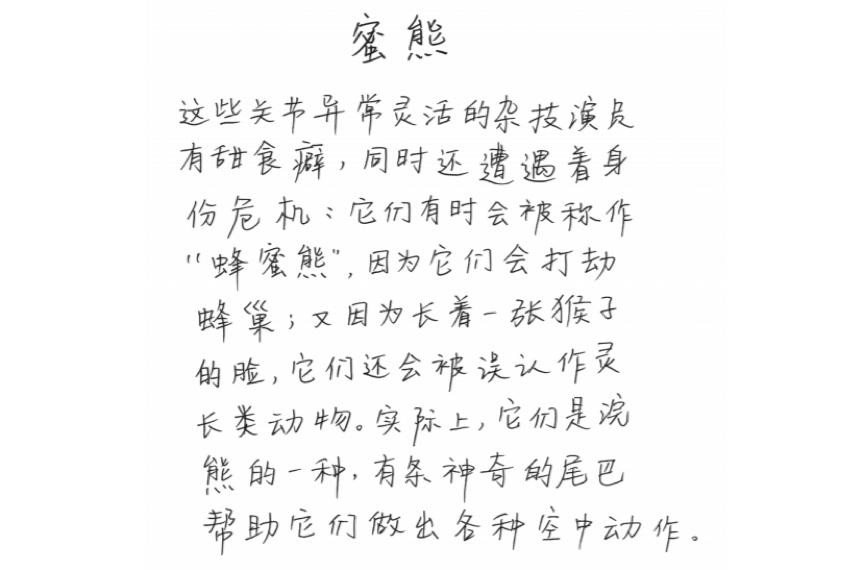 蜜熊
这些关节异常灵活的杂技演员
有甜食癖，同时还遭遇着身
份危机：它们有时会被称作
“蜂蜜熊”，因为它们会打劫
蜂巢；又因为长着一张猴子
的脸，它们还会被误认作灵
长类动物。实际上，它们是浣
熊的一种，有条神奇的尾巴
帮助它们做出各种空中动作。